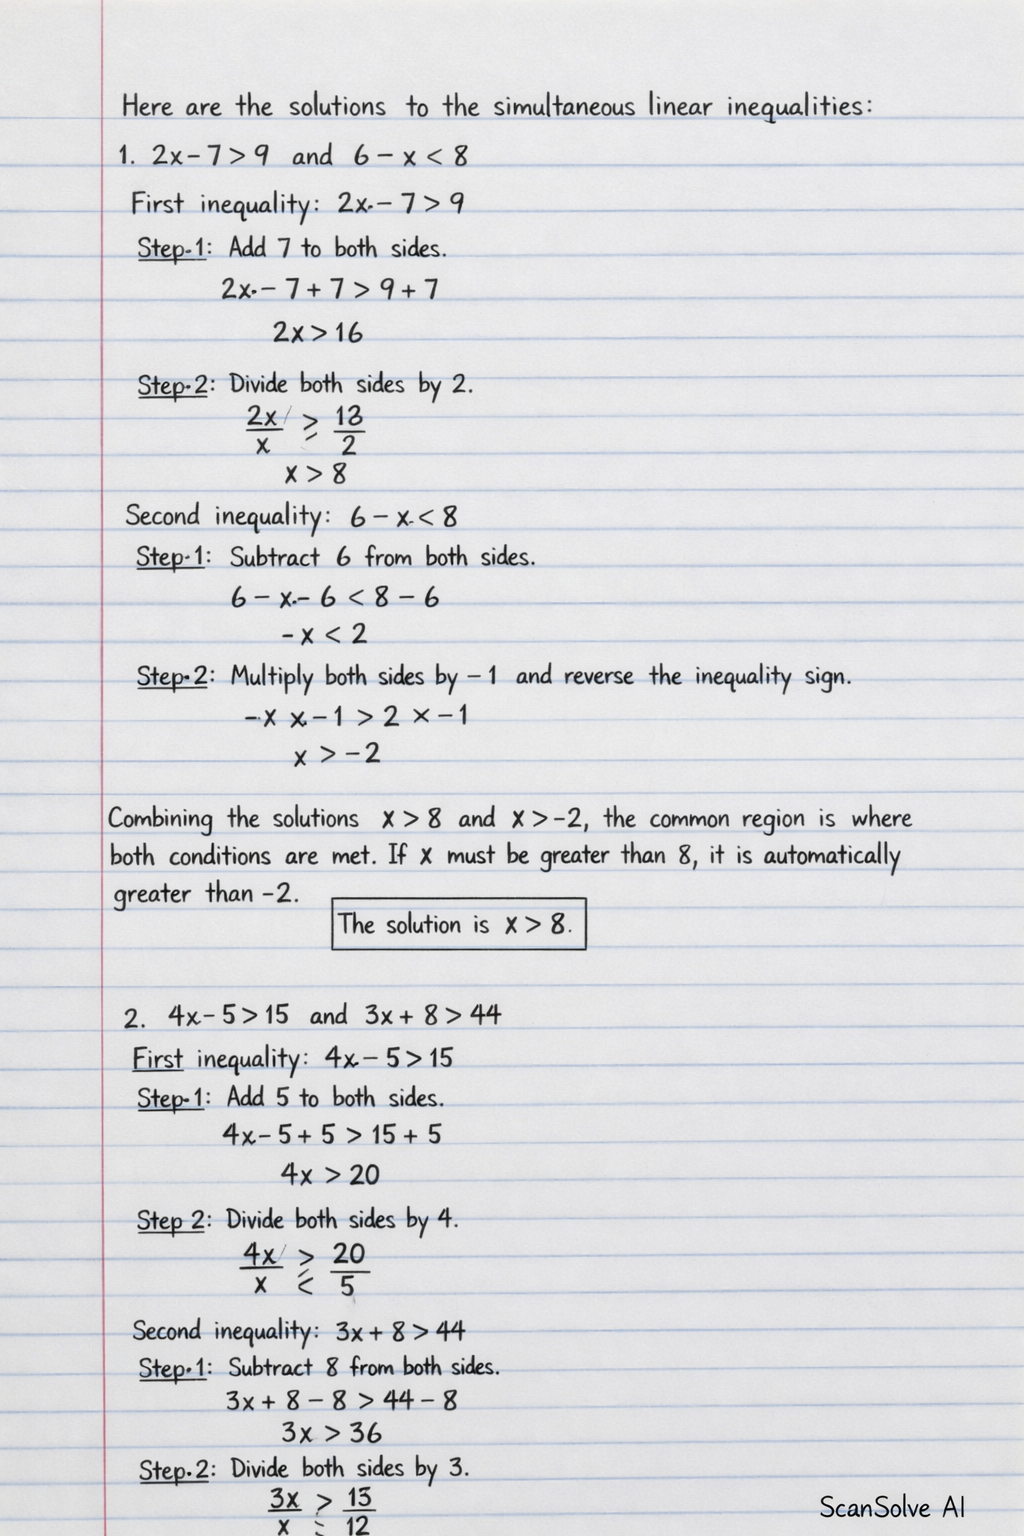 Here are the solutions to the simultaneous linear inequalities:
1. 2x - 7 > 9 and 6 - x < 8
First inequality: 2x - 7 > 9
Step-1: Add 7 to both sides.
2x - 7 + 7 > 9 + 7
2x > 16
Step-2: Divide both sides by 2.
2x > 13
x 2
x > 8
Second inequality: 6 - x < 8
Step-1: Subtract 6 from both sides.
6 - x - 6 < 8 - 6
-x < 2
Step-2: Multiply both sides by -1 and reverse the inequality sign.
-x x -1 > 2 x -1
x > -2
Combining the solutions x > 8 and x > -2, the common region is where
both conditions are met. If x must be greater than 8, it is automatically
greater than -2.
The solution is x > 8.
2. 4x - 5 > 15 and 3x + 8 > 44
First inequality: 4x - 5 > 15
Step-1: Add 5 to both sides.
4x - 5 + 5 > 15 + 5
4x > 20
Step 2: Divide both sides by 4.
4x > 20
x < 5
Second inequality: 3x + 8 > 44
Step-1: Subtract 8 from both sides.
3x + 8 - 8 > 44 - 8
3x > 36
Step-2: Divide both sides by 3.
3x > 15
x 12
ScanSolve AI